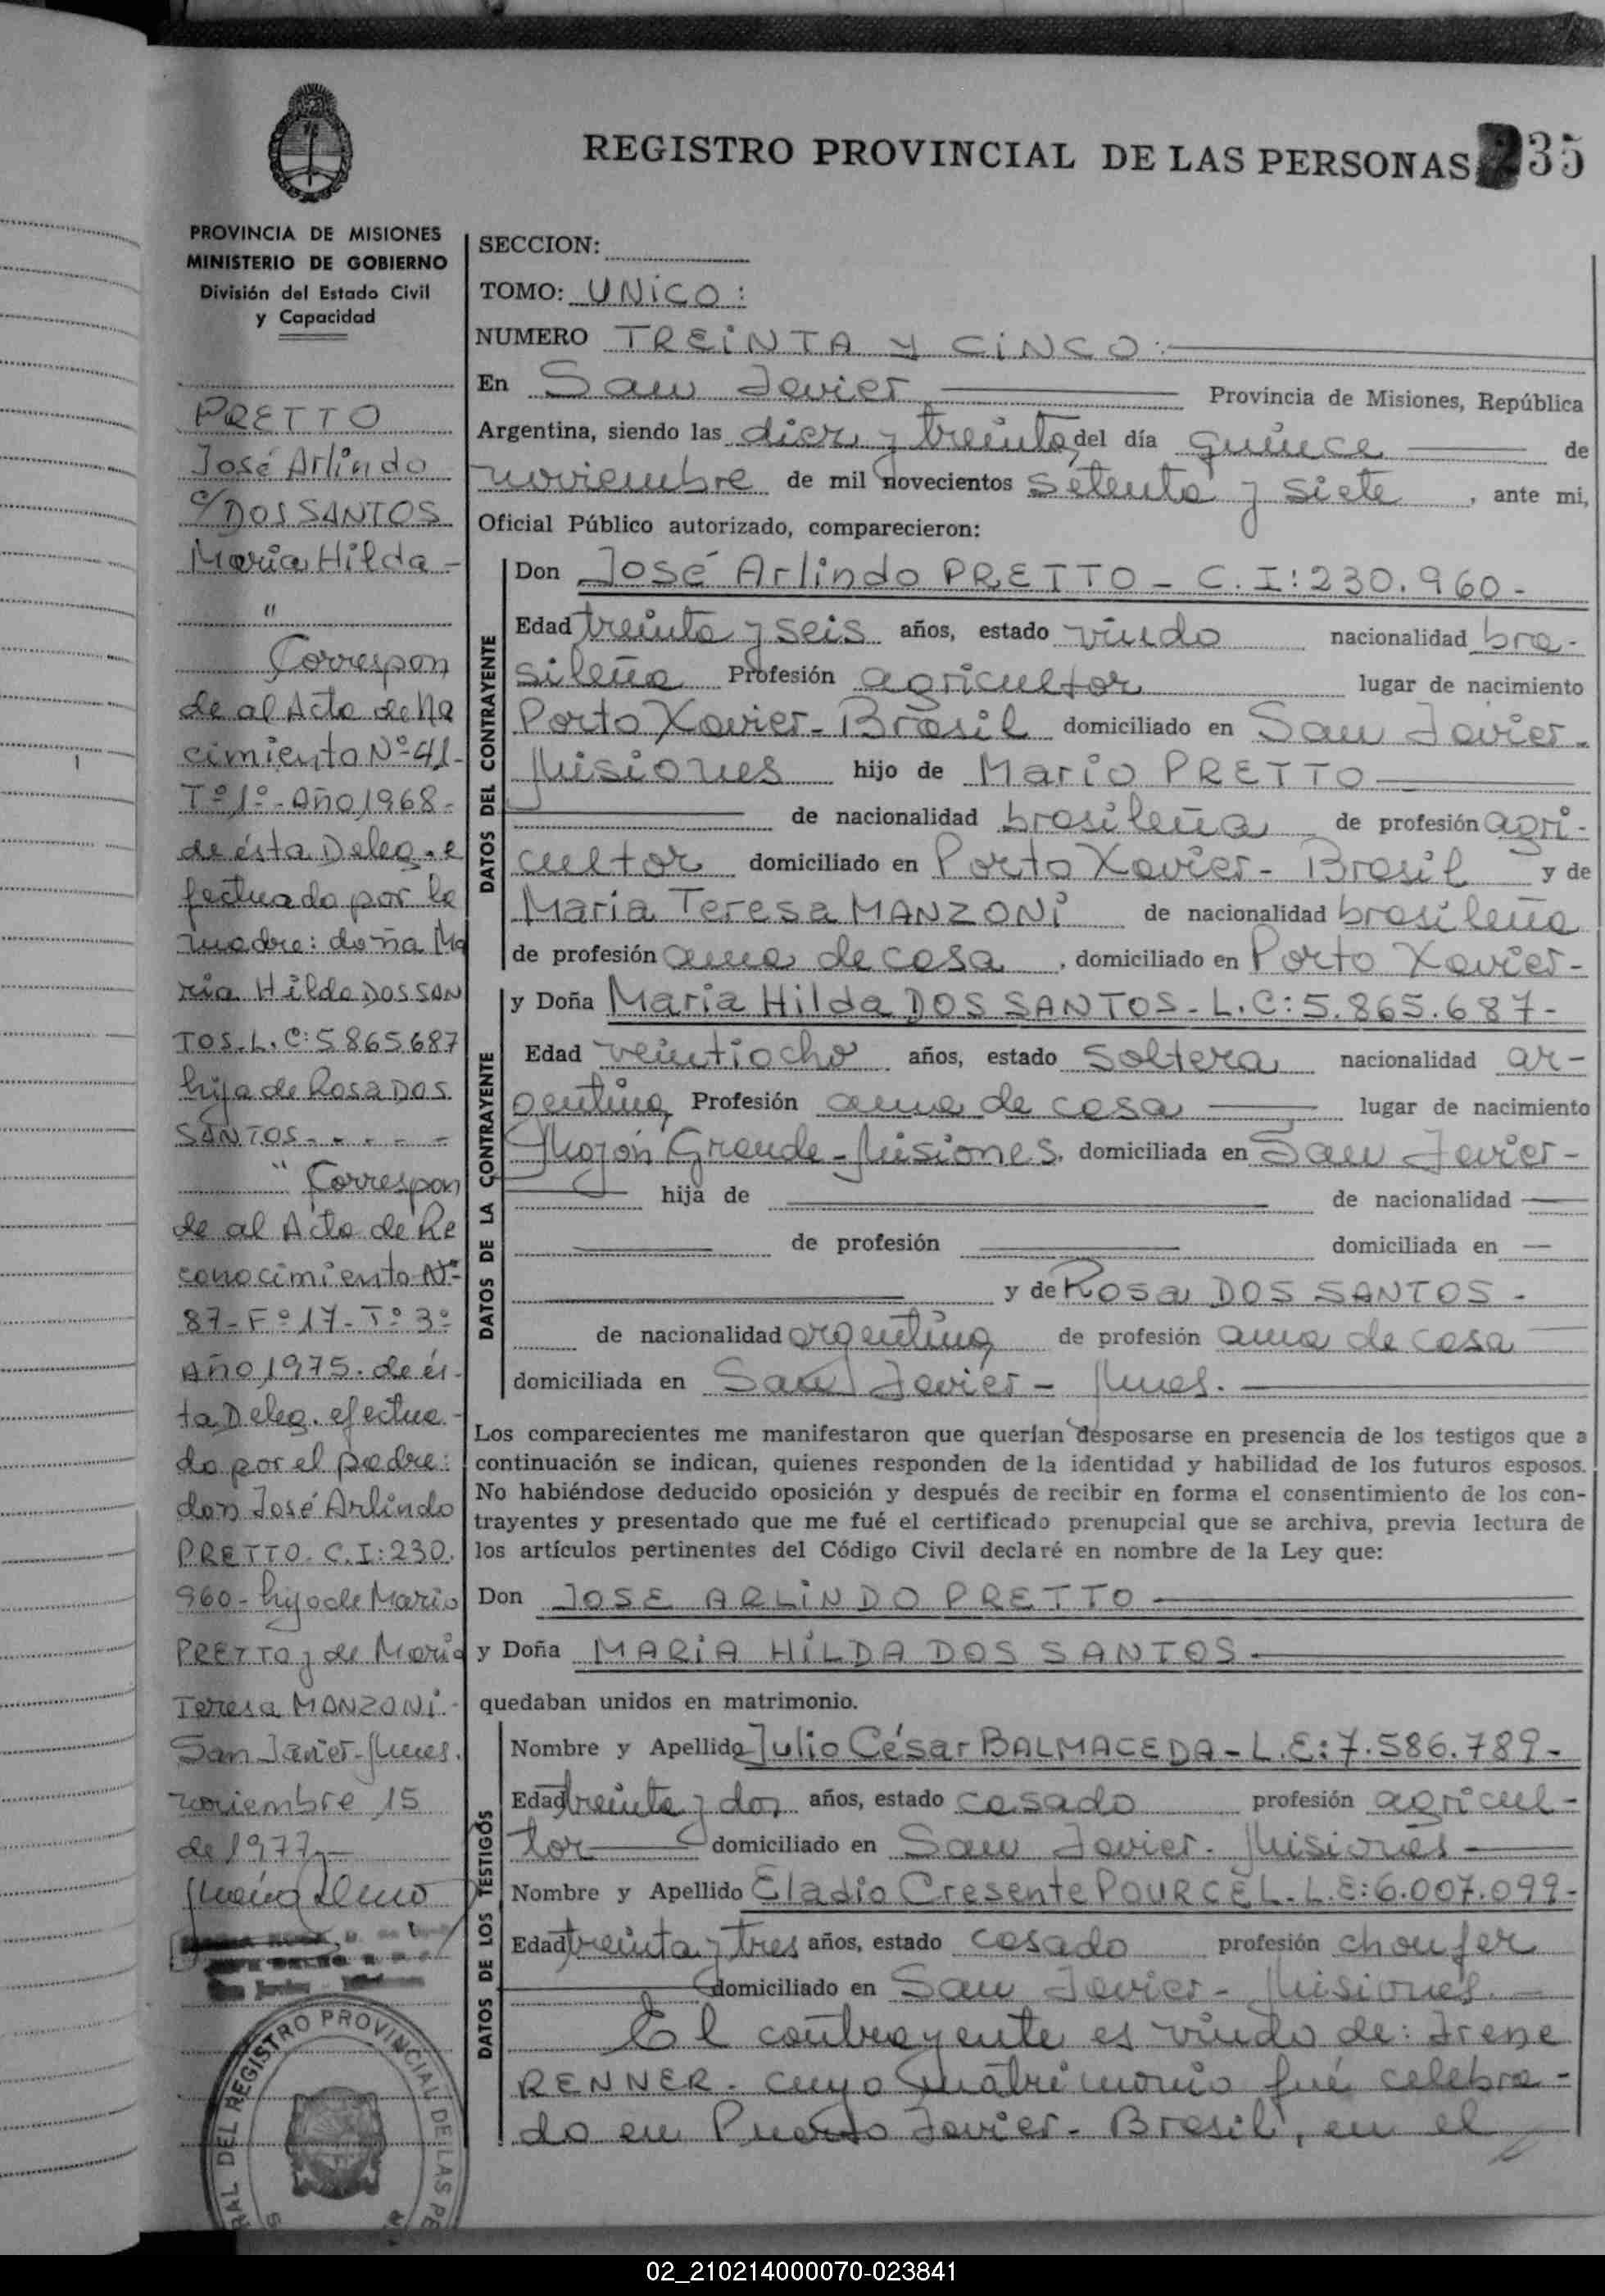 REGISTRO PROVINCIAL DE LAS PERSONAS 35
PROVINCIA DE MISIONES
MINISTERIO DE GOBIERNO
División del Estado Civil
y Capacidad
PRETTO
José Arlindo
c/DOS SANTOS
Maria Hilda -
"
Correspon
de al Acta de Na
cimiento Nº 41-
Tº 1º - Año 1968-
de ésta Deleg. e
fectuada por la
madre: doña Ma
ria Hilda DOS SAN
TOS - L.C: 5865687
hija de Rosa DOS
SANTOS - - - - -
" Correspon
de al Acta de Re
conocimiento Nº-
87 - Fº 17 - Tº 3º
Año 1975. de és-
ta Deleg. efectua-
do por el padre:
don José Arlindo
PRETTO - C.I: 230.
960 - hijo de Mario
PRETTO y de Maria
Teresa MANZONI -
San Javier - Mnes.
noviembre 15
de 1977.-
SECCION:
TOMO: UNICO:
NUMERO TREINTA Y CINCO :
En San Javier Provincia de Misiones, República
Argentina, siendo las diez y treinta, del día quince de
noviembre de mil novecientos setenta y siete , ante mi,
Oficial Público autorizado, comparecieron:
DATOS DEL CONTRAYENTE
Don José Arlindo PRETTO - C.I: 230.960 -
Edad treinta y seis años, estado viudo nacionalidad bra-
sileña Profesión agricultor lugar de nacimiento
Porto Xavier - Brasil domiciliado en San Javier -
Misiones hijo de Mario PRETTO
de nacionalidad brasileña de profesión agri-
cultor domiciliado en Porto Xavier - Brasil y de
Maria Teresa MANZONI de nacionalidad brasileña
de profesión ama de casa , domiciliado en Porto Xavier -
DATOS DE LA CONTRAYENTE
y Doña Maria Hilda DOS SANTOS - L.C: 5.865.687 -
Edad veintiocho años, estado soltera nacionalidad ar-
gentina Profesión ama de casa lugar de nacimiento
Mojón Grande - Misiones, domiciliada en San Javier -
hija de de nacionalidad
de profesión domiciliada en
y de Rosa DOS SANTOS -
de nacionalidad argentina de profesión ama de casa
domiciliada en San Javier - Mnes.
Los comparecientes me manifestaron que querían desposarse en presencia de los testigos que a
continuación se indican, quienes responden de la identidad y habilidad de los futuros esposos.
No habiéndose deducido oposición y después de recibir en forma el consentimiento de los con-
trayentes y presentado que me fué el certificado prenupcial que se archiva, previa lectura de
los artículos pertinentes del Código Civil declaré en nombre de la Ley que:
Don JOSE ARLINDO PRETTO
y Doña MARIA HILDA DOS SANTOS
quedaban unidos en matrimonio.
DATOS DE LOS TESTIGOS
Nombre y Apellido Julio César BALMACEDA - L.E: 7.586.789 -
Edad treinta y dos años, estado casado profesión agricul-
tor domiciliado en San Javier - Misiones
Nombre y Apellido Eladio Cresente POURCEL - L.E: 6.007.099 -
Edad treinta y tres años, estado casado profesión choufer
domiciliado en San Javier - Misiones. -
El contrayente es viudo de: Irene
RENNER - cuyo matrimonio fué celebra-
do en Puerto Javier - Brasil, en el
DEL REGISTRO PROVINCIAL DE LAS PE
02_210214000070-023841